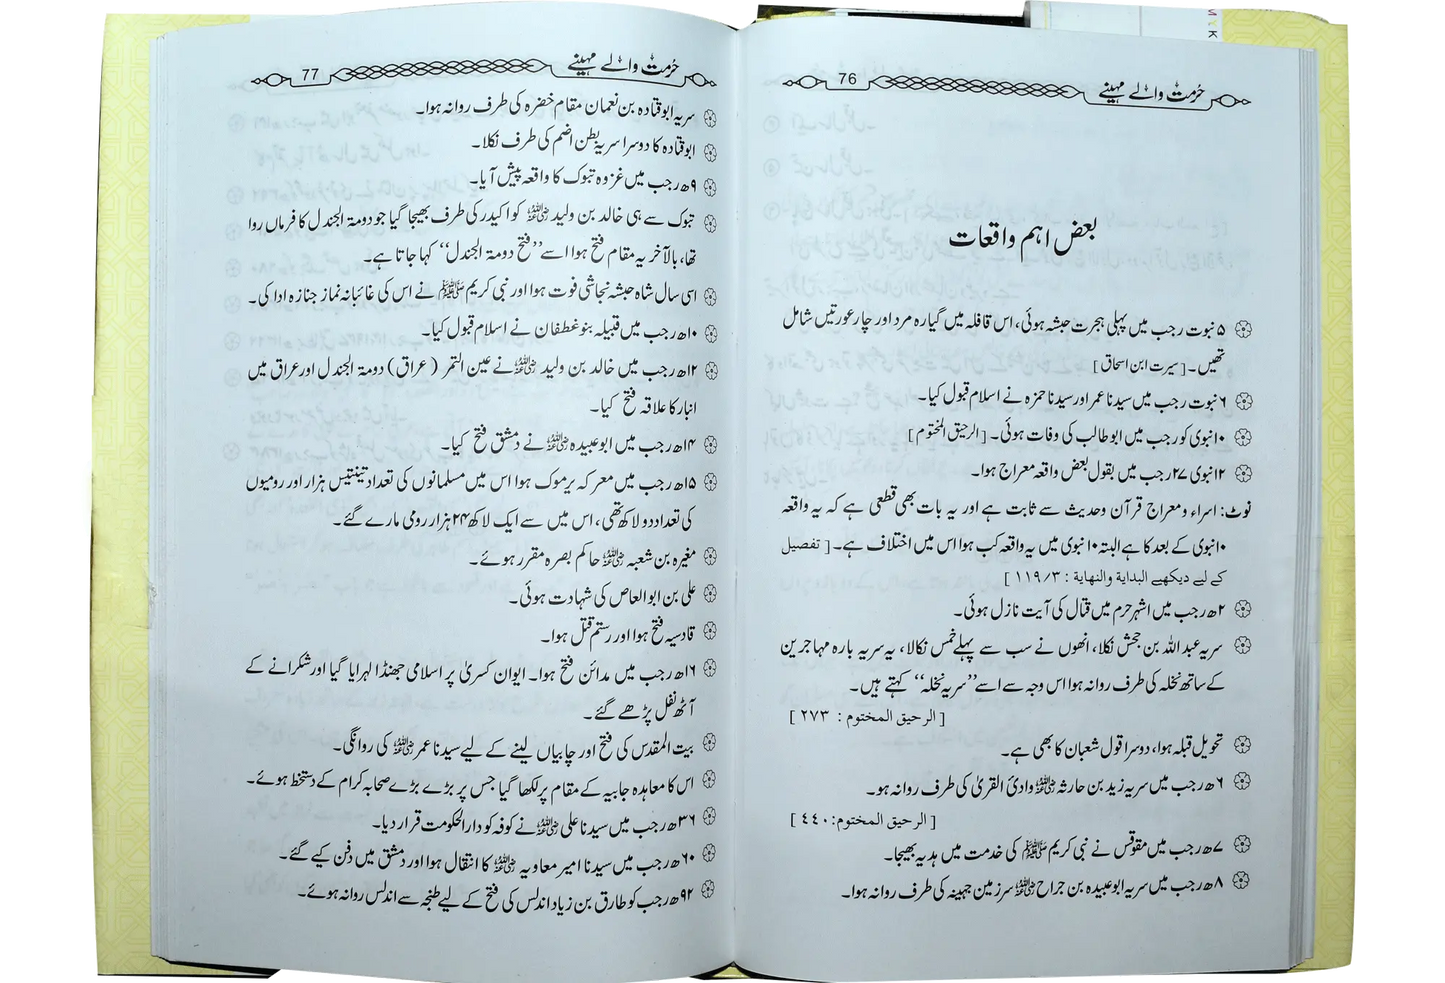 حُرمت والے مہینے 76
بعض اہم واقعات
۵ نبوت رجب میں پہلی ہجرت حبشہ ہوئی، اس قافلہ میں گیارہ مرد اور چار عورتیں شامل
تھیں۔ [سیرت ابن اسحاق]
۶ نبوت رجب میں سیدنا عمر اور سیدنا حمزہ نے اسلام قبول کیا۔
۱۰ نبوی کو رجب میں ابو طالب کی وفات ہوئی۔ [الرحیق المختوم]
۱۲ نبوی ۲۷ رجب میں بقول بعض واقعہ معراج ہوا۔
نوٹ: اسراء و معراج قرآن وحدیث سے ثابت ہے اور یہ بات بھی قطعی ہے کہ یہ واقعہ
۱۰ نبوی کے بعد کا ہے البتہ ۱۰ نبوی میں یہ واقعہ کب ہوا اس میں اختلاف ہے۔ [تفصیل
کے لیے دیکھیے البدایة والنهاية : ۱۱۹/۳ ]
۲ھ رجب میں اشہر حرم میں قتال کی آیت نازل ہوئی۔
سریہ عبد اللہ بن جحش نکلا، انھوں نے سب سے پہلے خمس نکالا، یہ سریہ بارہ مہاجرین
کے ساتھ نخلہ کی طرف روانہ ہوا اس وجہ سے اسے ”سریہ نخلہ“ کہتے ہیں۔
[الرحيق المختوم : ٢٧٣ ]
تحویل قبلہ ہوا، دوسرا قول شعبان کا بھی ہے۔
۶ھ رجب میں سریہ زید بن حارثہ رضی اللہ عنہ وادیٔ القریٰ کی طرف روانہ ہو۔
[الرحيق المختوم: ٤٤٠ ]
۷ھ رجب میں مقوقس نے نبی کریم ﷺ کی خدمت میں ہدیہ بھیجا۔
۸ھ رجب میں سریہ ابوعبیدہ بن جراح رضی اللہ عنہ سرزمین جہینہ کی طرف روانہ ہوا۔
حُرمت والے مہینے 77
سریہ ابوقتادہ بن نعمان مقام خضرہ کی طرف روانہ ہوا۔
ابوقتادہ کا دوسرا سریہ بطن اضم کی طرف نکلا۔
۹ھ رجب میں غزوہ تبوک کا واقعہ پیش آیا۔
تبوک سے ہی خالد بن ولید رضی اللہ عنہ کو اکیدر کی طرف بھیجا گیا جو دومۃ الجندل کا فرماں روا
تھا، بالآخر یہ مقام فتح ہوا اسے ”فتح دومۃ الجندل“ کہا جاتا ہے۔
اسی سال شاہ حبشہ نجاشی فوت ہوا اور نبی کریم ﷺ نے اس کی غائبانہ نماز جنازہ ادا کی۔
۱۰ھ رجب میں قبیلہ بنو غطفان نے اسلام قبول کیا۔
۱۲ھ رجب میں خالد بن ولید رضی اللہ عنہ نے عین التمر (عراق) دومۃ الجندل اور عراق میں
انبار کا علاقہ فتح کیا۔
۱۴ھ رجب میں ابوعبیدہ رضی اللہ عنہ نے دمشق فتح کیا۔
۱۵ھ رجب میں معرکہ یرموک ہوا اس میں مسلمانوں کی تعداد تینتیس ہزار اور رومیوں
کی تعداد دو لاکھ تھی، اس میں سے ایک لاکھ ۲۴ ہزار رومی مارے گئے۔
مغیرہ بن شعبہ رضی اللہ عنہ حاکم بصرہ مقرر ہوئے۔
علی بن ابوالعاص کی شہادت ہوئی۔
قادسیہ فتح ہوا اور رستم قتل ہوا۔
۱۶ھ رجب میں مدائن فتح ہوا۔ ایوان کسریٰ پر اسلامی جھنڈا لہرایا گیا اور شکرانے کے
آٹھ نفل پڑھے گئے۔
بیت المقدس کی فتح اور چابیاں لینے کے لیے سیدنا عمر رضی اللہ عنہ کی روانگی۔
اس کا معاہدہ جابیہ کے مقام پر لکھا گیا جس پر بڑے بڑے صحابہ کرام کے دستخط ہوئے۔
۳۶ھ رجب میں سیدنا علی رضی اللہ عنہ نے کوفہ کو دارالحکومت قرار دیا۔
۶۰ھ رجب میں سیدنا امیر معاویہ رضی اللہ عنہ کا انتقال ہوا اور دمشق میں دفن کیے گئے۔
۹۲ھ رجب کو طارق بن زیاد اندلس کی فتح کے لیے طنجہ سے اندلس روانہ ہوئے۔